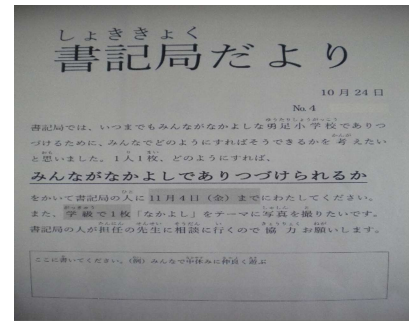 しょききょく
書記局だより
10月24日
No.4
書記局では、いつまでもみんながなかよしな勇足小学校でありつ
づけるために、みんなでどのようにすればそうできるかを考えたい
と思いました。1人1枚、どのようにすれば、
みんながなかよしでありつづけられるか
をかいて書記局の人に11月4日(金)までにわたしてください。
また、学級で1枚「なかよし」をテーマに写真を撮りたいです。
書記局の人が担任の先生に相談に行くので協力お願いします。
ここに書いてください。(例)みんなで中休みに仲良く遊ぶ